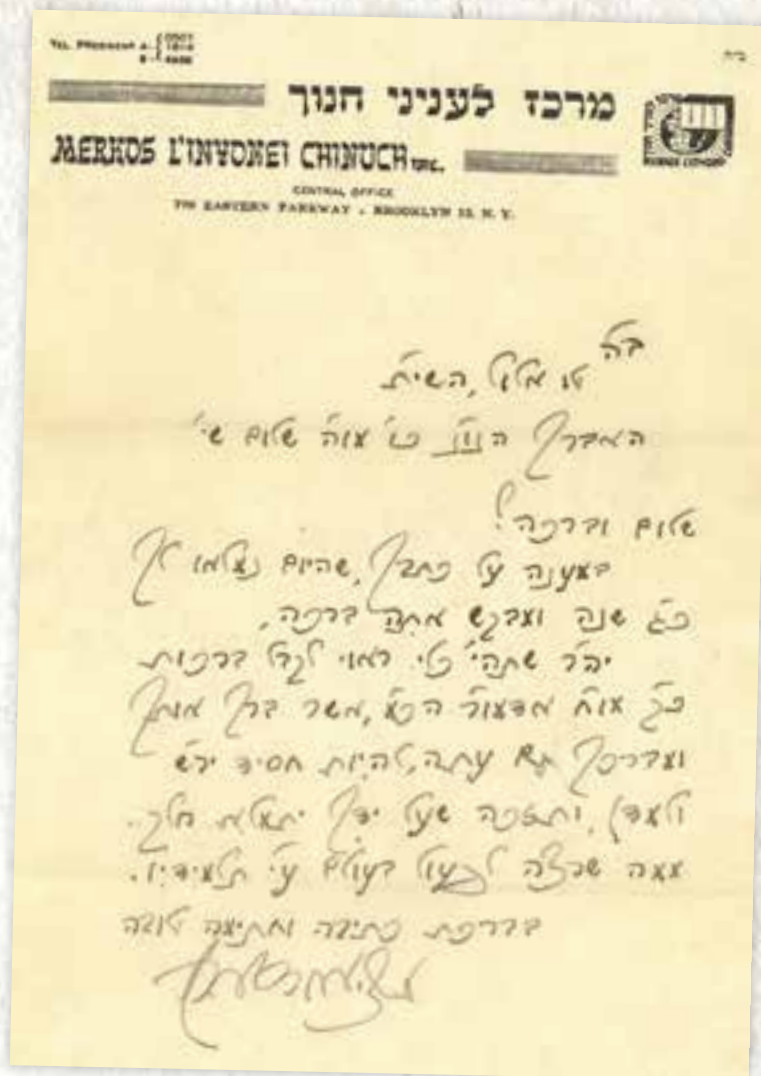 ב״ה
TEL. PRESIDENT 4-
מרכז לעניני חנוך
MERKOS L'INYONEI CHINUCH INC.
CENTRAL OFFICE
770 EASTERN PARKWAY . BROOKLYN 13, N. Y.
ב״ה
טו אלול, השי״ת
האברך הוו״ח כו׳ מוה׳ שלום שי׳
שלום וברכה!
במענה על כתבך, שהיום נמלאו לך
כ״ג שנה ומבקש אתה ברכה,
יה״ר שתהי׳ כלי ראוי לקבל ברכות
כ״ק מו״ח אדמו״ר הכ״מ, אשר ברך אותך
ומברכך גם עתה, להיות חסיד יר״ש
ולמדן, ותזכה שעל ידך יתמלא חלק
ממה שרצה לפעול בעולם ע״י תלמידיו.
בברכת כתיבה וחתימה טובה